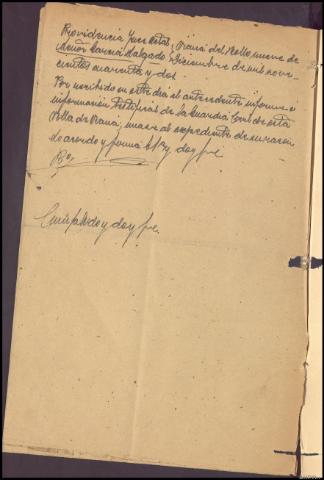 Providencia Juez Actal. Priaral del Bello nueve de
Señor García Salgado. Diciembre de mil nove-
cientos cuarenta y dos
Por recibido en este dia el antecedente informe e
información de la Guardia Civil de esta
Villa de une al expediente de su razón.
Lo acordo y firma S.Sª, doy fe
Cumplido y doy fe.